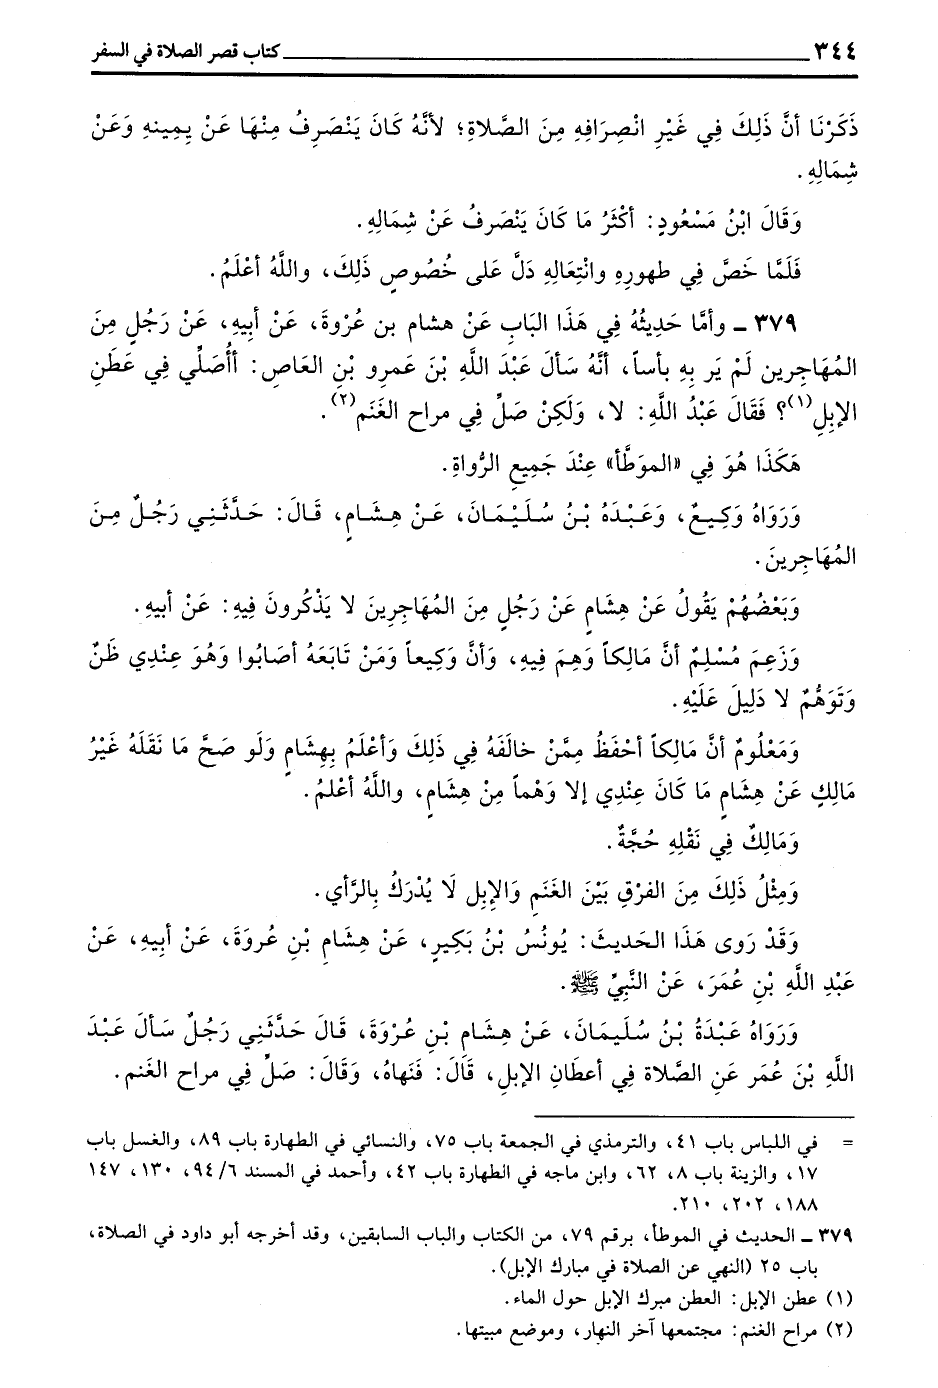 ٣٤٤ كتاب قصر الصلاة في السفر
ذَكَرْنَا أنَّ ذَلِكَ فِي غَيْرِ انْصِرَافِهِ مِنَ الصَّلاةِ؛ لأنَّهُ كَانَ يَنْصَرِفُ مِنْهَا عَنْ يِمِينهِ وَعَنْ
شِمَالِهِ.
وَقَالَ ابْنُ مَسْعُودٍ: أكْثَرُ مَا كَانَ يَنْصَرفُ عَنْ شِمَالِهِ.
فَلَمَّا خَصَّ فِي طهورِهِ وانْتِعَالِهِ دَلَّ عَلى خُصُوصٍ ذَلِكَ، واللَّهُ أعْلَمُ.
٣٧٩ ـ وأمَّا حَدِيثُهُ فِي هَذَا البَابِ عَنْ هشام بن عُرْوةَ، عَنْ أبيهِ، عَنْ رَجُلٍ مِنَ
المُهَاجرين لَمْ يَر بِهِ بأساً، أنَّهُ سَألَ عَبْدَ اللَّهِ بْنَ عَمرِو بْنِ العَاصِ: أأُصَلِّي فِي عَطَنِ
الإبِلِ(١)؟ فَقَالَ عَبْدُ اللَّهِ: لا، وَلَكِنْ صَلِّ فِي مراح الغَنَم(٢).
هَكَذَا هُوَ فِي «الموَطَّأ» عِنْدَ جَمِيعِ الرُّواةِ.
وَرَوَاهُ وَكِيعٌ، وَعَبْدَهُ بْنُ سُلَيْمَانَ، عَنْ هِشَامٍ، قَالَ: حَدَّثَنِي رَجُلٌ مِنَ
المُهَاجرِينَ.
وَبَعْضُهُمْ يَقُولُ عَنْ هِشَامٍ عَنْ رَجُلٍ مِنَ المُهَاجِرِينَ لا يَذْكُرونَ فِيهِ: عَنْ أبيهِ.
وَزَعِمَ مُسْلِمٌ أنَّ مَالِكاً وَهِمَ فِيهِ، وَأنَّ وَكِيعاً وَمَنْ تَابَعَهُ أصَابُوا وَهُوَ عِنْدِي ظَنٌ
وَتَوَهُّمٌ لا دَلِيلَ عَلَيْهِ.
وَمَعْلُومٌ أنَّ مَالِكاً أحْفَظُ مِمَّنْ خالَفَهُ فِي ذَلِكَ وَأعْلَمُ بِهِشَامٍ وَلَو صَحَّ مَا نَقَلَهُ غَيْرُ
مَالِكٍ عَنْ هِشَامٍ مَا كَانَ عِنْدِي إلا وَهْماً مِنْ هِشَامٍ، واللَّهُ أعْلمُ.
وَمَالِكٌ فِي نَقْلِهِ حُجَّةٌ.
وَمِثْلُ ذَلِكَ مِنَ الفرْقِ بَيْنَ الغَنَمِ وَالإبِل لَا يُدْرَكُ بِالرَّأي.
وَقَدْ رَوى هَذَا الحَديثَ: يُونُسُ بْنُ بَكِيرٍ، عَنْ هِشَامِ بْنِ عُروَةَ، عَنْ أبِيهِ، عَنْ
عَبْدِ اللَّهِ بْنِ عُمَرَ، عَنْ النَّبِيِّ ﷺ.
وَرَوَاهُ عَبْدَةُ بْنُ سُلَيمَانَ، عَنْ هِشَامِ بْنِ عُرْوَةَ، قَالَ حَدَّثَنِي رَجُلٌ سَألَ عَبْدَ
اللَّهِ بْنَ عُمَر عَنِ الصَّلاة فِي أعطَانِ الإبلِ، قَالَ: فَنَهاهُ، وَقَالَ: صَلِّ فِي مراح الغَنم.
= في اللباس باب ٤١، والترمذي في الجمعة باب ٧٥، والنسائي في الطهارة باب ٨٩، والغسل باب
١٧، والزينة باب ٨، ٦٢، وابن ماجه في الطهارة باب ٤٢، وأحمد في المسند ٦/ ٩٤، ١٣٠، ١٤٧
١٨٨، ٢٠٢، ٢١٠.
٣٧٩ ـ الحديث في الموطأ، برقم ٧٩، من الكتاب والباب السابقين، وقد أخرجه أبو داود في الصلاة،
باب ٢٥ (النهي عن الصلاة في مبارك الإبل).
(١) عطن الإبل: العطن مبرك الإبل حول الماء.
(٢) مراح الغنم: مجتمعها آخر النهار، وموضع مبيتها.